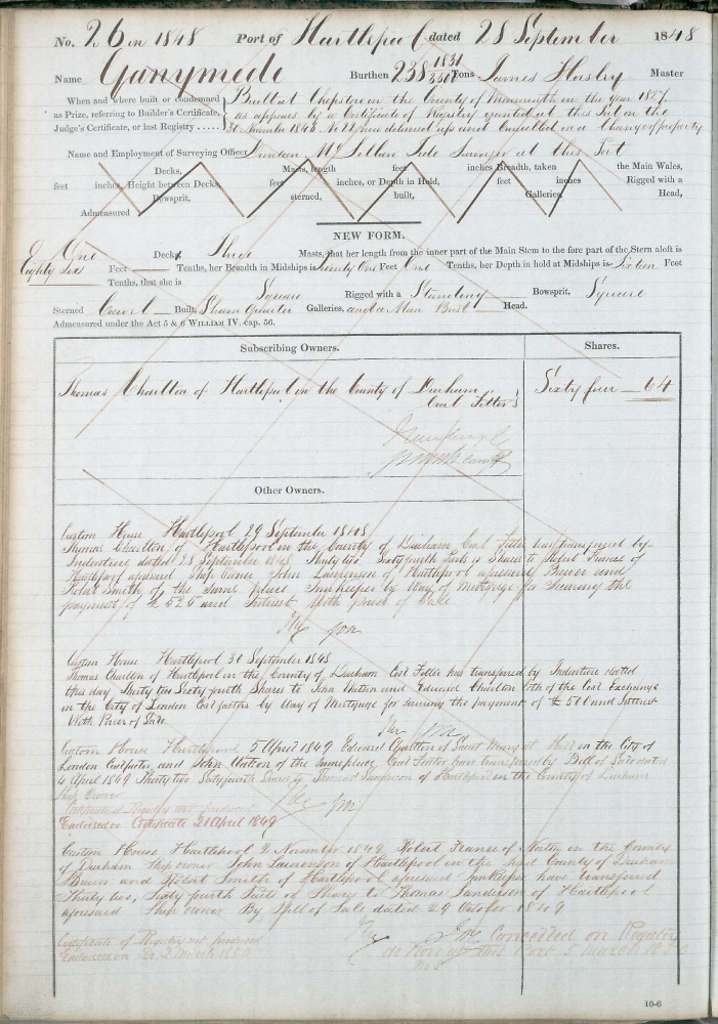 No. 26 in 1848 Port of Hartlepool dated 28 September 1848
Name Ganymede Burthen 238 1831/3517 Tons James Master
When and where built or condemned Built at Chepstow in the County of Monmouth in the year
as Prize, referring to Builder's Certificate, as appears by a Certificate of Registry granted at this Port on the
Judge's Certificate, or last Registry ..... No 22 now delivered up and Cancelled on a Change of property
Name and Employment of Surveying Officer Duncan McLellan Tide Surveyor at this Port
Decks, Masts, length feet inches, Breadth, taken the Main Wales,
feet inches, Height between Decks, feet inches, or Depth in Hold, feet inches Rigged with a
Bowsprit, sterned, built, Galleries, Head,
Admeasured
NEW FORM.
One Deck, Three Masts, that her length from the inner part of the Main Stem to the fore part of the Stern aloft is
Eighty Six Feet — Tenths, her Breadth in Midships is Twenty One Feet One Tenths, her Depth in hold at Midships is Sixteen Feet
Tenths, that she is Square Rigged with a Standing Bowsprit, Square
Sterned Carvel Built, Sham Quarter Galleries, and a Man Bust Head.
Admeasured under the Act 5 & 6 WILLIAM IV. cap. 56.
Subscribing Owners. Shares.
Thomas Charlton of Hartlepool in the County of Durham Sixty four — 64
Coal Fitter
Other Owners.
Custom House Hartlepool 29 September 1848
Thomas Charlton of Hartlepool in the County of Durham Coal Fitter has transferred by
Indenture dated 28 September 1848 Thirty two Sixty fourth Parts or Shares to Robert France of
Hartlepool aforesaid Ship Owner John Lawrenson of Hartlepool aforesaid Brewer and
Robert Smith of the same place Innkeeper by Way of Mortgage for Securing the
payment of £525 and Interest With power of Sale
Custom House Hartlepool 30 September 1848
Thomas Charlton of Hartlepool in the County of Durham Coal Fitter has transferred by Indenture dated
this day Thirty two Sixty fourth Shares to John Watson and Edward Charlton both of the Coal Exchange
in the City of London Coal factors by Way of Mortgage for securing the payment of £ 500 and Interest
With Power of Sale
Custom House Hartlepool 5 April 1849 Edward Charlton of Saint Mary at Hill in the City of
London Coal factor and John Watson of the same place Coal Factor have transferred by Bill of Sale dated
4 April 1849 Thirty two Sixty fourth Shares to Thomas Sanderson of Hartlepool in the County of Durham
Ship Owner
Certificate of Registry not produced
Endorsed on Certificate 21 April 1849
Custom House Hartlepool 2 November 1849 Robert France of in the County
of Durham Ship owner John Lawrenson of Hartlepool in the said County of Durham
Brewer and Robert Smith of Hartlepool aforesaid Innkeeper have transferred
Thirty two, Sixty fourth Parts or Shares to Thomas Sanderson of Hartlepool
aforesaid Ship owner By Bill of Sale dated 29 October 1849
Certificate of Registry not produced Cancelled on Registry
Endorsed on 2 March 1850 de Novo at this Port 2 March 1850
No 5
10-6